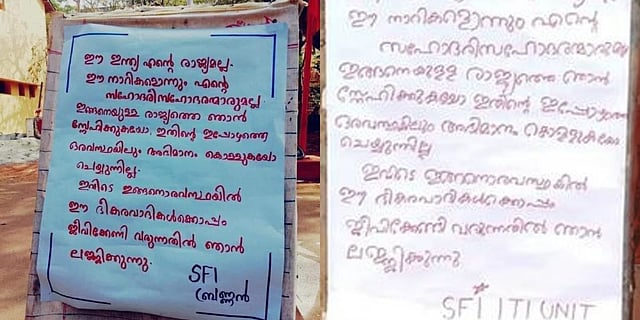 ഈ ഇന്ത്യ എന്റെ രാജ്യമല്ല.
ഈ നാറികളൊന്നും എന്റെ
സഹോദരീസഹോദരന്മാരുമല്ല
ഇങ്ങനെയുള്ള രാജ്യത്തെ ഞാൻ
സ്നേഹിക്കുകയോ, ഇതിന്റെ ഇപ്പോഴത്തെ
ദുരവസ്ഥയിലും അഭിമാനം കൊള്ളുകയോ
ചെയ്യുന്നില്ല.
ഇവിടെ ഇങ്ങനൊരവസ്ഥയിൽ
ഈ ഭീകരവാദികൾക്കൊപ്പം
ജീവിക്കേണ്ടി വരുന്നതിൽ ഞാൻ
ലജ്ജിക്കുന്നു.
SFI
ബ്രണ്ണൻ
ഈ നാറികളൊന്നും എന്റെ
സഹോദരീസഹോദരന്മാരുമല്ല
ഇങ്ങനെയുള്ള രാജ്യത്തെ ഞാൻ
സ്നേഹിക്കുകയോ ഇതിന്റെ ഇപ്പോഴത്തെ
ദുരവസ്ഥയിലും അഭിമാനം കൊള്ളുകയോ
ചെയ്യുന്നില്ല
ഇവിടെ ഇങ്ങനൊരവസ്ഥയിൽ
ഈ ഭീകരവാദികൾക്കൊപ്പം
ജീവിക്കേണ്ടി വരുന്നതിൽ ഞാൻ
ലജ്ജിക്കുന്നു
SFI ITI UNIT